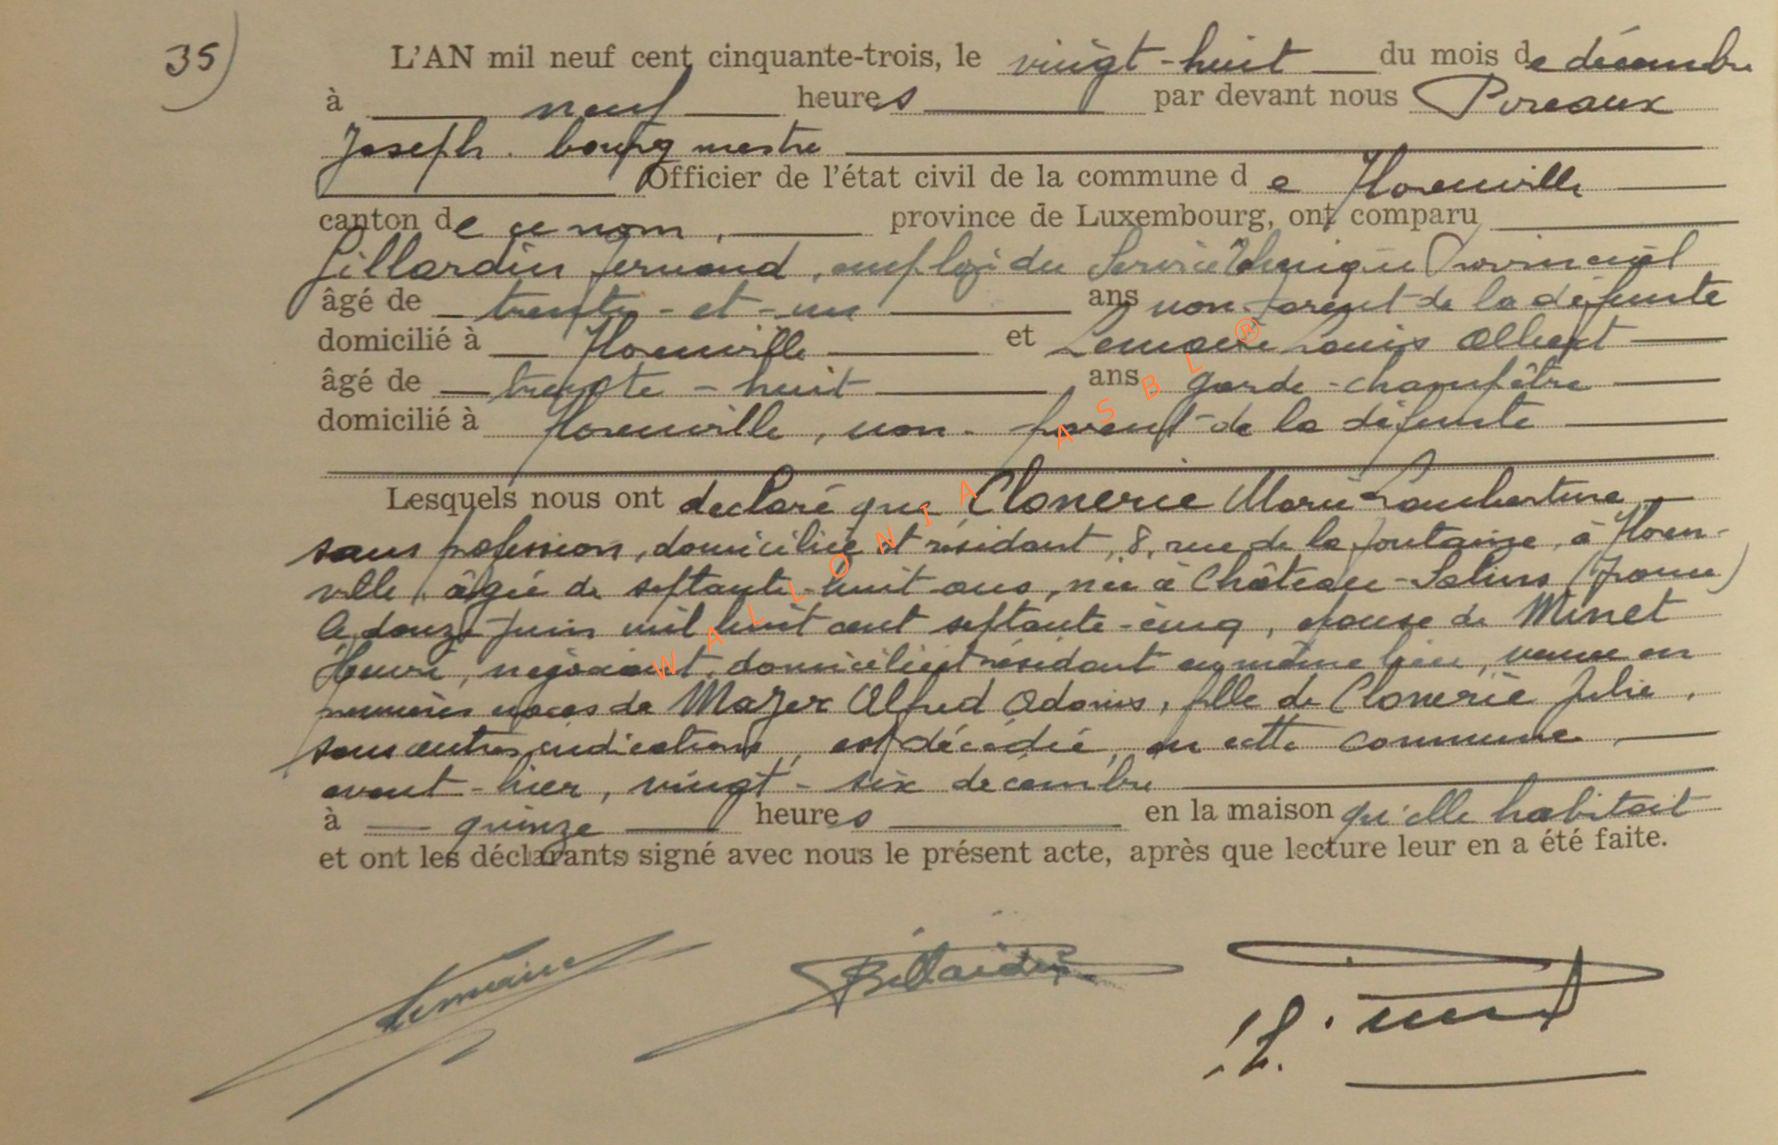 35)
L'AN mil neuf cent cinquante-trois, le vingt-huit du mois de décembre
à neuf heures par devant nous Pireaux
Joseph. bourgmestre
Officier de l'état civil de la commune de Florenville
canton de ce nom, province de Luxembourg, ont comparu
Gillardin Fernand, employé du Service Technique Provincial
âgé de trente-et-un ans non-parent de la défunte
domicilié à Florenville et Lemaire Louis Albert
âgé de trente-huit ans garde-champêtre
domicilié à Florenville, non-parent de la défunte
Lesquels nous ont déclaré que Clonerie Marie Lambertine
sans profession, domiciliée et résidant, 8, rue de la Fontaine, à Floren-
ville, âgée de septante-huit ans, née à Château-Salins (France)
le douze juin mil huit cent septante-cinq, épouse de Minet
Henri, négociant, domicilié et résidant au même lieu, veuve en
premières noces de Mazer Alfred Adonis, fille de Clonerie Julie,
sans autres indications, est décédée, en cette commune,
avant-hier, vingt-six décembre
à quinze heures en la maison qu'elle habitait
et ont les déclarants signé avec nous le présent acte, après que lecture leur en a été faite.
Lemaire
WALLONIA ASBL ®